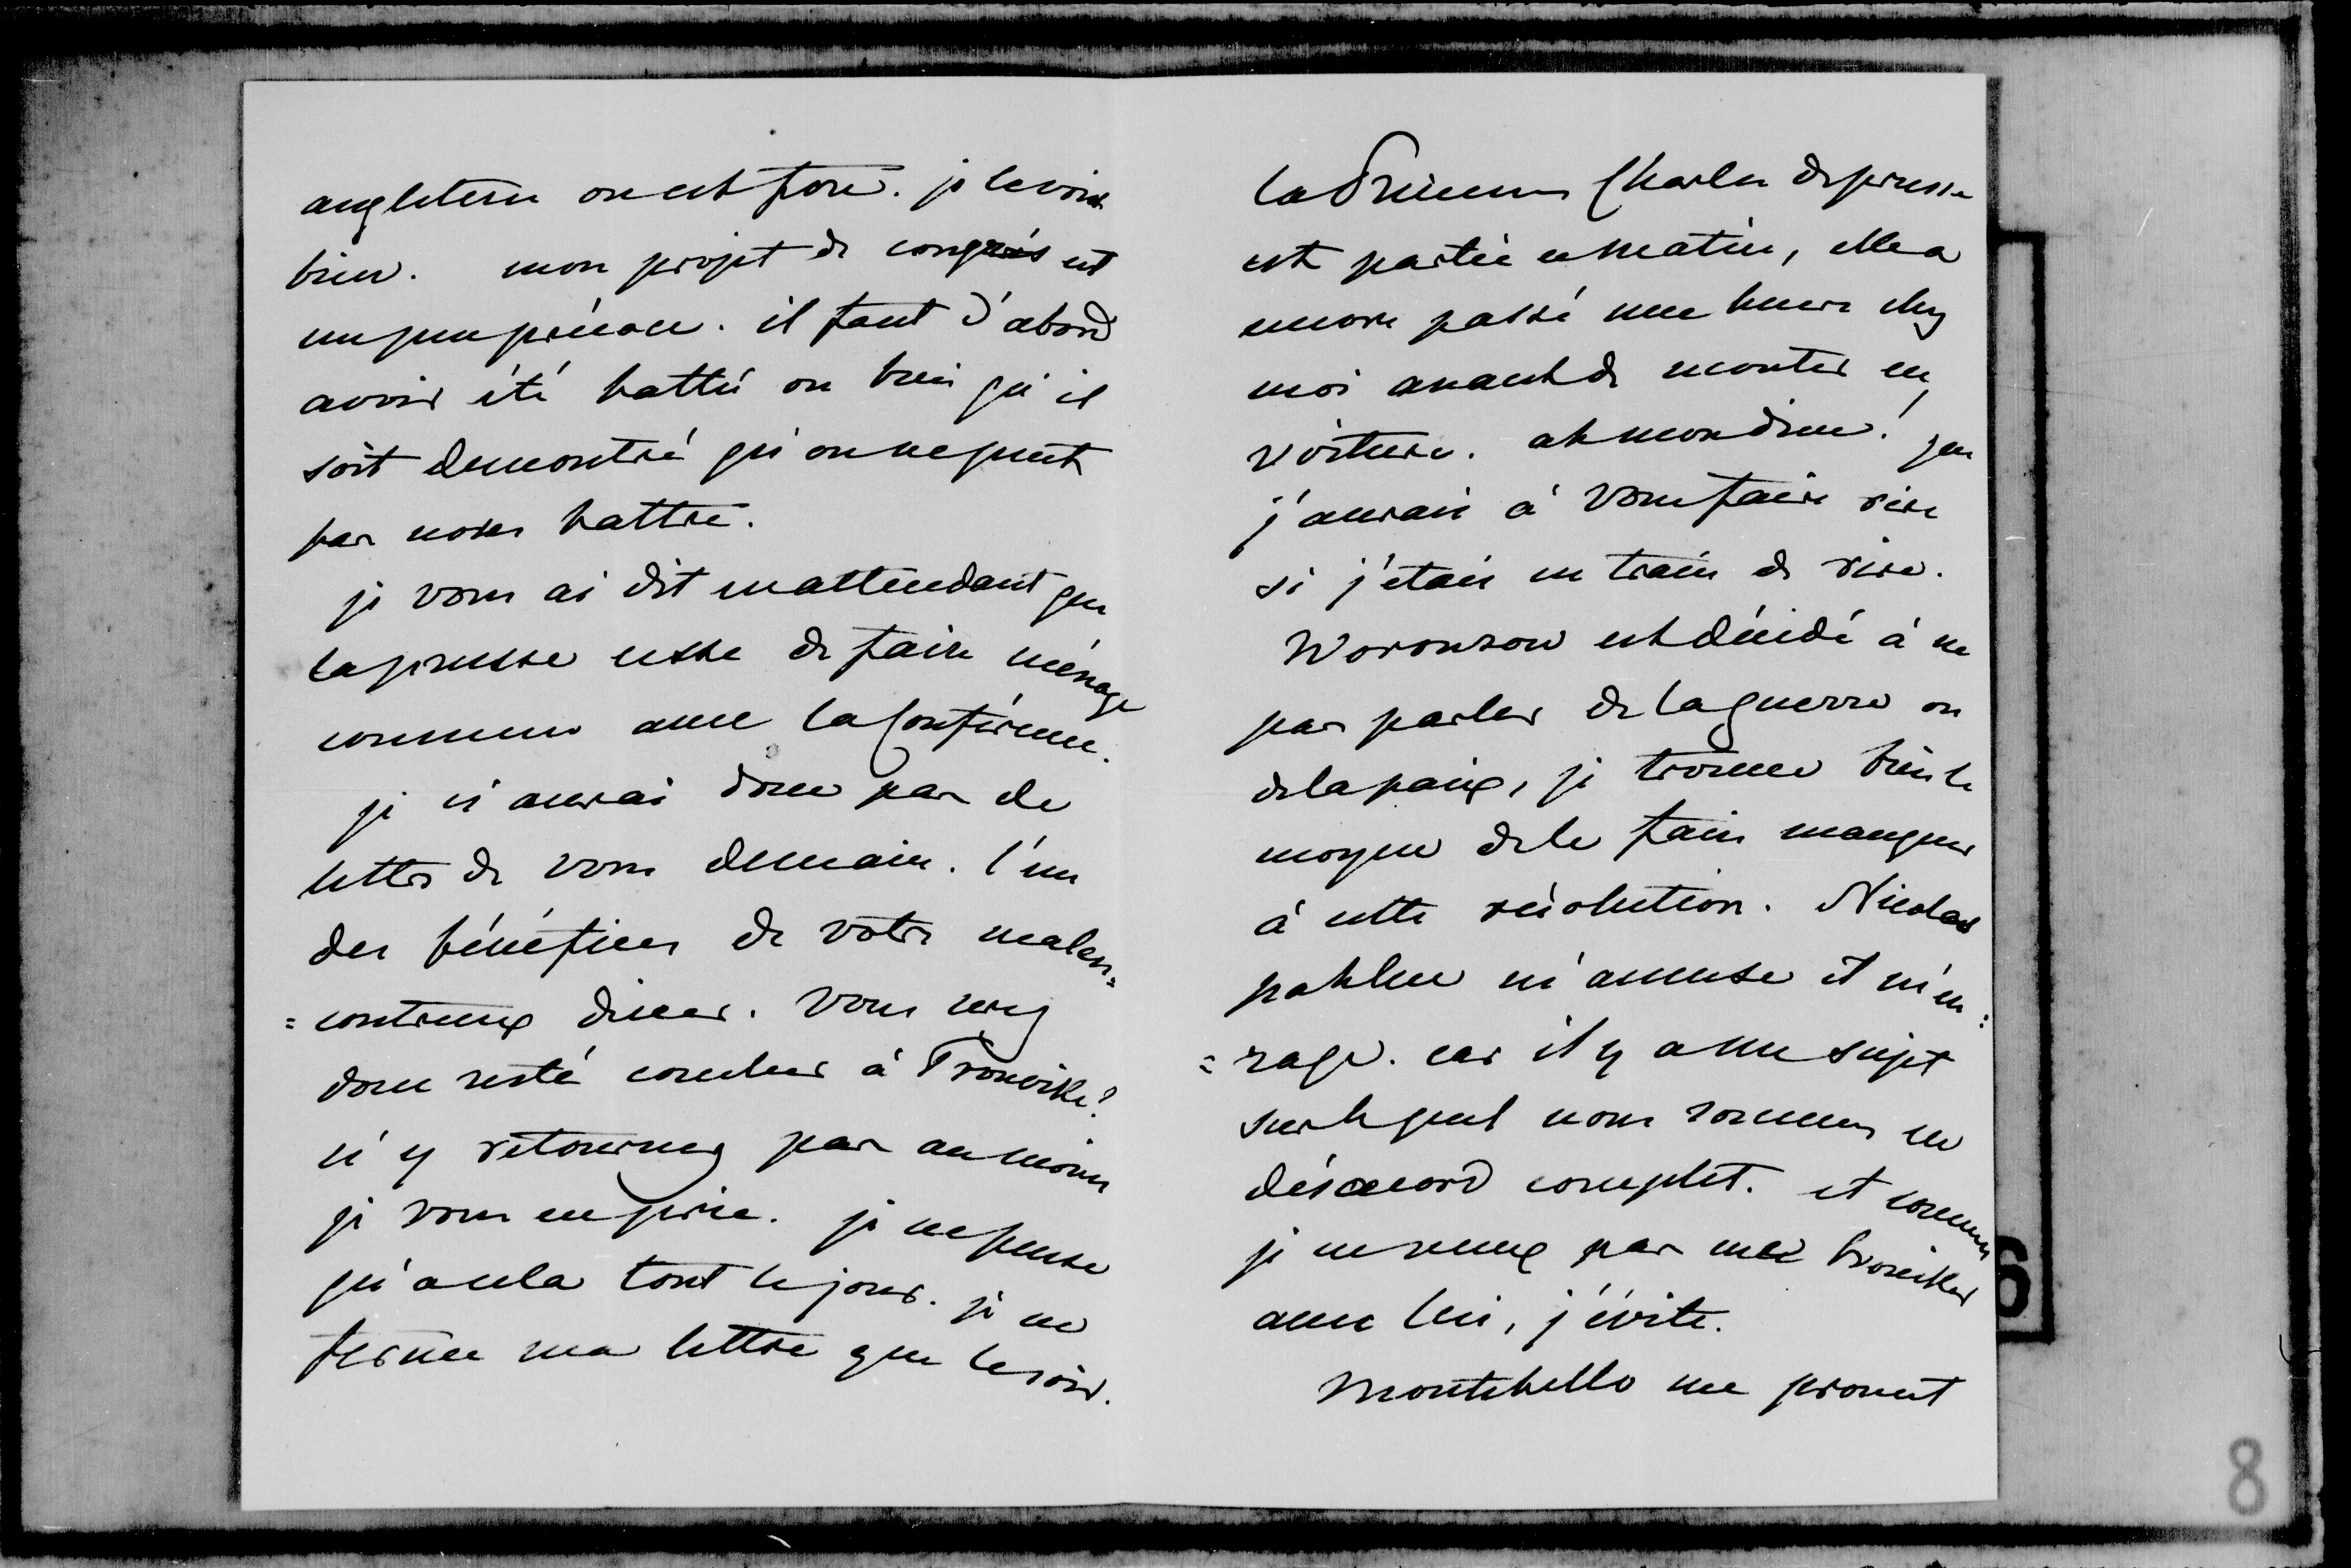 angleterre on est fou. je le vois
bien. mon projet de congrès est
un peu précoce. il faut d'abord
avoir été battu ou bien qu'il
soit demontré qu'on ne peut
pas nous battre.
je vous ai dit en attendant que
la prusse cesse de faire ménage
commun avec la Conférence.
je n'aurai donc pas de
lettre de vous demain. l'un
des bénéfices de votre malen=
=contreux diner. vous serez
donc resté coucher à Trouville?
n'y retournez pas au moins
je vous en prie. je ne pense
qu'à cela tout le jour. je ne
ferme ma lettre que le soir.
la Princesse Charles de prusse
est partie ce matin, elle a
encore passé une heure chez
moi avant de monter en
voiture. ah mon dieu! que
j'aurais à vous faire rire
si j'étais en train de rire.
Woronzow est décidé à ne
pas parler de la guerre ou
de la paix, je trouve bien le
moyen de le faire manquer
à cette résolution. Nicolas
pahlen m'amuse et m'en=
=rage. car il y a un sujet
sur lequel nous sommes en
désaccord complet. et comme
je ne veux pas me brouiller
avec lui, j'évite.
Montebello me promet
8